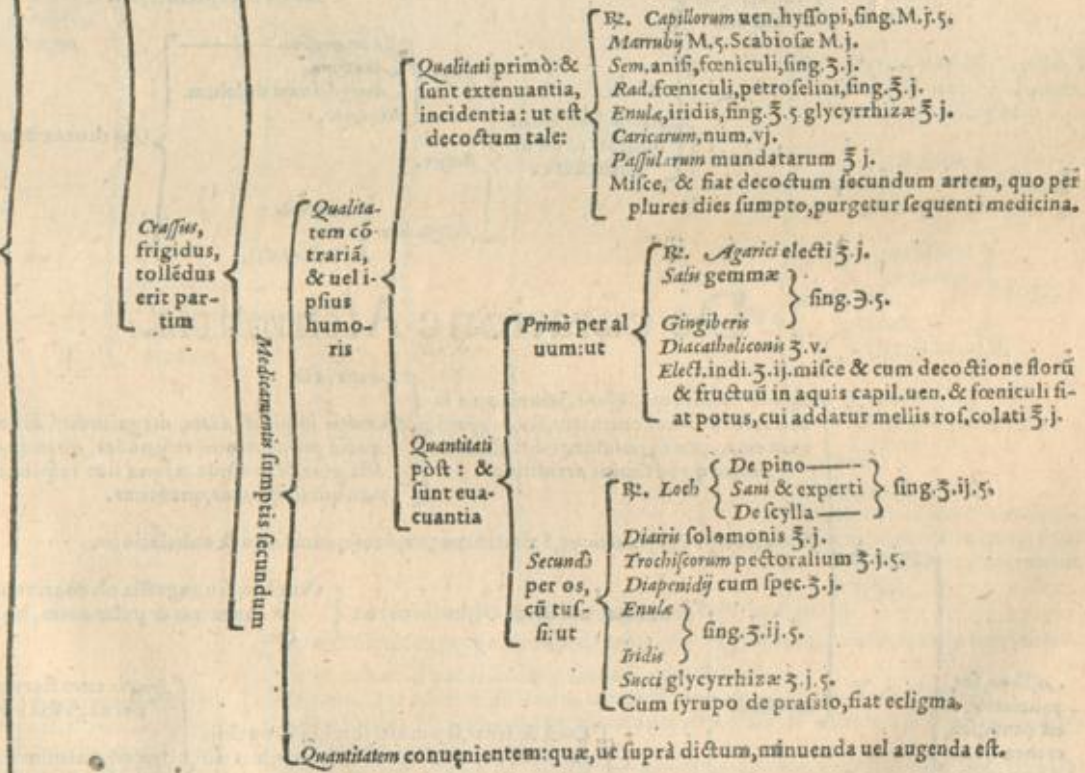 Crassus,
frigidus,
tollẽdus
erit par-
tim
Medicamentis sumptis secundum
Qualita-
tem cõ
trariã,
& uel i-
psius
humo-
ris
Qualitati primò: &
sunt extenuantia,
incidentia: ut est
decoctum tale:
℞. Capillorum uen. hyssopi, sing. M. j. ſ.
Marrubij M. ſ. Scabiosæ M. j.
Sem. anisi, fœniculi, sing. ʒ. j.
Rad. fœniculi, petroselini, sing. ℥. j.
Enulæ, iridis, sing. ℥. ſ. glycyrrhizæ ℥. j.
Caricarum, num. vj.
Passularum mundatarum ℥ j.
Misce, & fiat decoctum secundum artem, quo per
plures dies sumpto, purgetur sequenti medicina.
Quantitati
pòst: &
sunt eua-
cuantia
Primò per al
uum: ut
℞. Agarici electi ʒ. j.
Salis gemmæ
Gingiberis
sing. ℈. ſ.
Diacatholiconis ʒ. v.
Elect. indi. ʒ. ij. misce & cum decoctione florũ
& fructuũ in aquis capil. uen. & fœniculi fi-
at potus, cui addatur mellis ros. colati ℥. j.
Secundò
per os,
cũ tus-
si: ut
℞. Loch
De pino
Sani & experti
De scylla
sing. ʒ. ij. ſ.
Diairis solomonis ℥. j.
Trochiscorum pectoralium ℥. j. ſ.
Diapenidij cum spec. ʒ. j.
Enulæ
Iridis
sing. ʒ. ij. ſ.
Succi glycyrrhizæ ʒ. j. ſ.
Cum syrupo de prassio, fiat ecligma.
Quantitatem conuenientem: quæ, ut suprà dictum, minuenda uel augenda est.